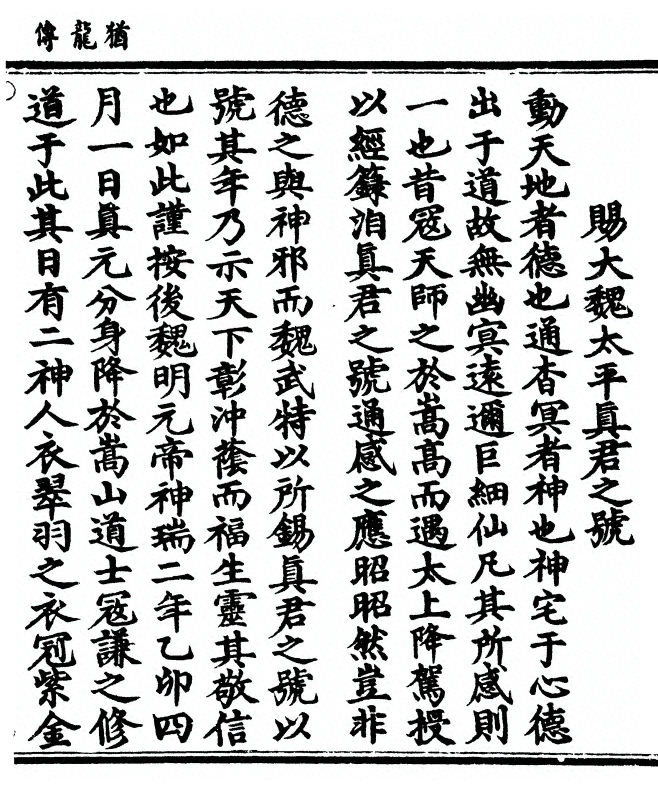 猶龍傳
賜大魏太平眞君之號
動天地者德也通杳冥者神也神宅于心德
出于道故無幽㝠遠邇巨細仙凡其所感則
一也昔寇天師之於嵩高而遇太上降駕授
以經籙洎眞君之號通感之應昭昭然豈非
德之與神邪而魏武特以所錫眞君之號以
號其年乃示天下彰沖蔭而福生靈其敬信
也如此謹按後魏明元帝神瑞二年乙卯四
月一日眞元分身降於嵩山道士寇謙之修
道于此其日有二神人衣翠羽之衣冠紫金